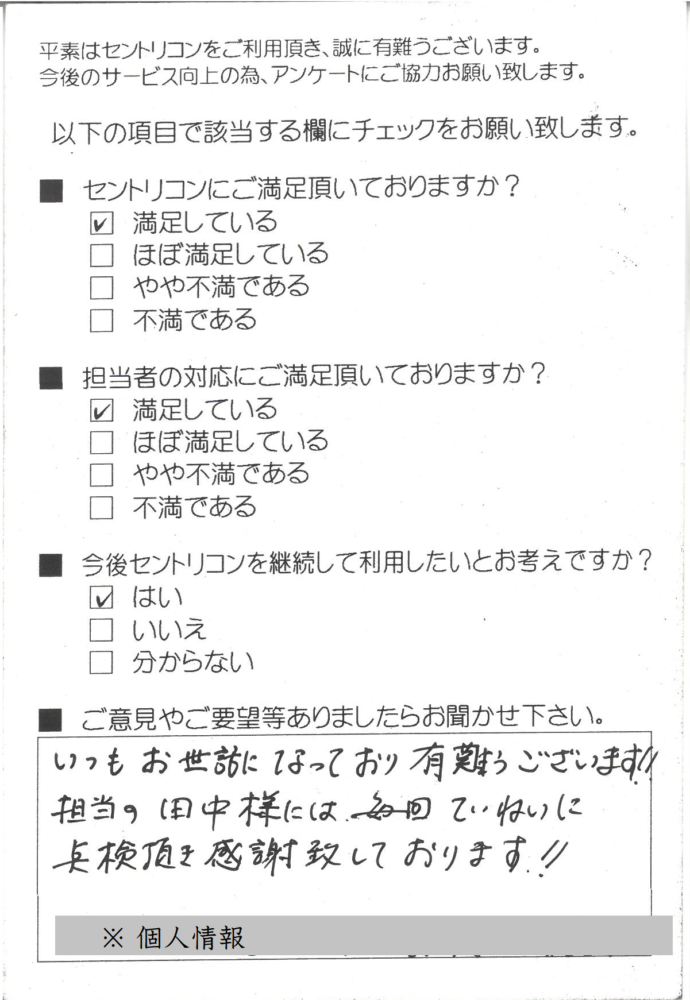 平素はセントリコンをご利用頂き、誠に有難うございます。
今後のサービス向上の為、アンケートにご協力お願い致します。
以下の項目で該当する欄にチェックをお願い致します。
■ セントリコンにご満足頂いておりますか？
☑ 満足している
☐ ほぼ満足している
☐ やや不満である
☐ 不満である
■ 担当者の対応にご満足頂いておりますか？
☑ 満足している
☐ ほぼ満足している
☐ やや不満である
☐ 不満である
■ 今後セントリコンを継続して利用したいとお考えですか？
☑ はい
☐ いいえ
☐ 分からない
■ ご意見やご要望等ありましたらお聞かせ下さい。
いつもお世話になっており有難うございます!!
担当の田中様には、毎回ていねいに
点検頂き感謝致しております!!
※ 個人情報